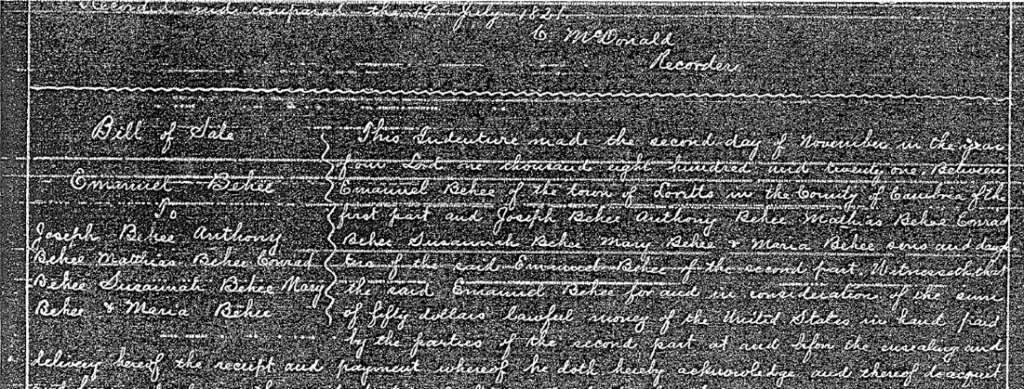 Record and compared the 19 July 1821.
C. McDonald
Recorder.
Bill of Sale
Emanuel Behee
To
Joseph Behee Anthony
Behee Matthias Behee Conrad
Behee Susannah Behee Mary
Behee & Maria Behee
This Indenture made the second day of November in the year
four Lord one thousand eight hundred and twenty one. Between
Emanuel Behee of the town of Loretto in the County of Cambria of the
first part and Joseph Behee Anthony Behee Mathias Behee Conrad
Behee Susannah Behee Mary Behee & Maria Behee sons and daugh
ters of the said Emanuel Behee of the second part. Witnesseth that
the said Emanuel Behee for and in consideration of the sum
of fifty dollars lawful money of the United States in hand paid
by the parties of the second part at and before the ensealing and
delivery hereof the receipt and payment whereof he doth hereby acknowledge and thereof do acquit